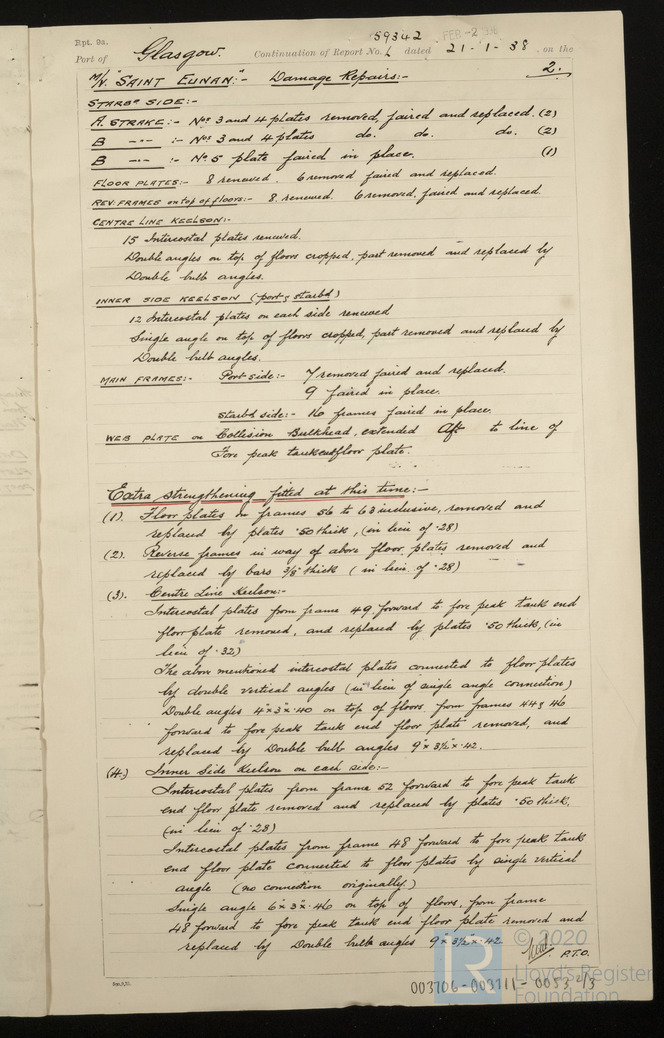 Rpt. 9a.
59342
FEB -2 1938
Port of Glasgow. Continuation of Report No. dated 21-1-38. on the
M/V. "SAINT EUNAN":- Damage Repairs:- 2.
STARBD SIDE:-
A. STRAKE:- Nos 3 and 4 plates removed, faired and replaced. (2)
B —"— :- Nos 3 and 4 plates do. do. do. (2)
B —"— :- No 5 plate faired in place. (1)
FLOOR PLATES:- 8 renewed. 6 removed faired and replaced.
REV. FRAMES on top of floors:- 8. renewed. 6 removed, faired and replaced.
CENTRE LINE KEELSON:-
15 Intercostal plates renewed.
Double angles on top of floors cropped, part removed and replaced by
Double bulb angles.
INNER SIDE KEELSON (port & starbd)
12 Intercostal plates on each side renewed
Single angle on top of floors cropped, part removed and replaced by
Double bulb angles.
MAIN FRAMES:- Port side:- 7 removed faired and replaced.
9 faired in place.
Starbd side:- 16 frames faired in place.
WEB PLATE on Collision Bulkhead, extended Aft to line of
Fore peak tank end floor plate.
Extra strengthening fitted at this time:-
(1). Floor plates on frames 56 to 63 inclusive, removed and
replaced by plates ·50 thick, (in lieu of ·28)
(2). Reverse frames in way of above floor plates removed and
replaced by bars 3/8" thick (in lieu of ·28)
(3). Centre Line Keelson:-
Intercostal plates from frame 49 forward to fore peak tank end
floor plate removed, and replaced by plates ·50 thick, (in
lieu of ·32)
The above mentioned intercostal plates connected to floor plates
by double vertical angles (in lieu of single angle connection)
Double angles 4"x 3"x ·40 on top of floors from frames 44 & 46
forward to fore peak tank end floor plate removed, and
replaced by Double bulb angles 9"x 3½"x ·42.
(4.) Inner Side Keelson on each side:-
Intercostal plates from frame 52 forward to fore peak tank
end floor plate removed and replaced by plates ·50 thick,
(in lieu of ·28)
Intercostal plates from frame 48 forward to fore peak tank
end floor plate connected to floor plates by single vertical
angle (no connection originally.)
Single angle 6"x 3"x ·46 on top of floors, from frame
48 forward to fore peak tank end floor plate removed and
replaced by Double bulb angles 9"x 3½"x ·42.
P.T.O.
© 2020
Lloyd's Register
Foundation
003706-003711-0053 2/3